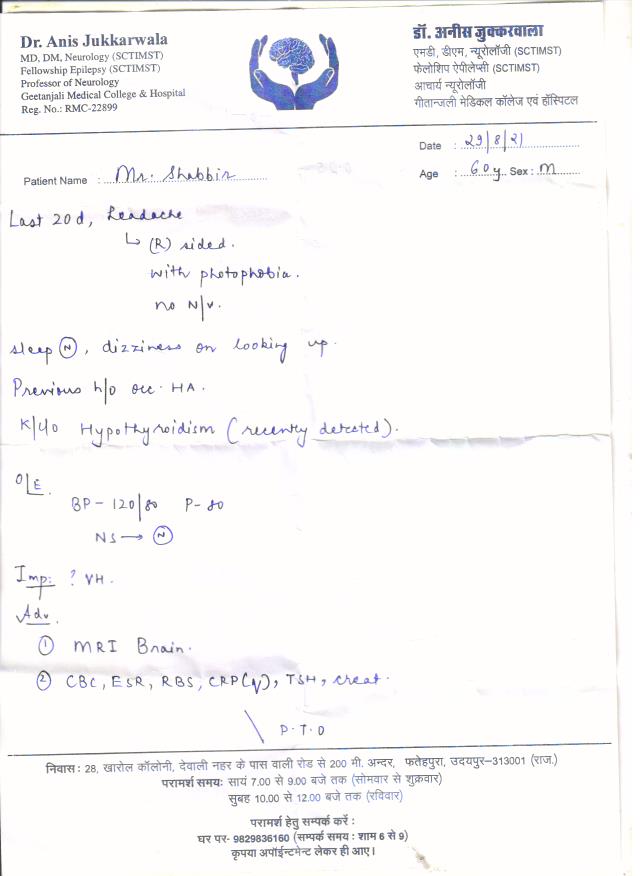 Dr. Anis Jukkarwala
MD, DM, Neurology (SCTIMST)
Fellowship Epilepsy (SCTIMST)
Professor of Neurology
Geetanjali Medical College & Hospital
Reg. No.: RMC-22899
डॉ. अनीस जुक्करवाला
एमडी, डीएम, न्यूरोलॉजी (SCTIMST)
फेलोशिप ऐपीलेप्सी (SCTIMST)
आचार्य न्यूरोलॉजी
गीतान्जली मेडिकल कॉलेज एवं हॉस्पिटल
Date : 29/8/21
Patient Name : Mr. Shabbir
Age : 60y Sex : M
Last 20d, headache
↳ (R) sided.
with photophobia.
no N/V.
sleep (N), dizziness on looking up.
Previous h/o occ. HA.
K/c/o Hypothyroidism (recently detected).
O/E.
BP - 120/80 P - 80
NS → (N)
Imp: ? VH.
Adv.
① MRI Brain.
② CBC, ESR, RBS, CRP, TSH, creat.
P.T.O
निवास : 28, खारोल कॉलोनी, देवाली नहर के पास वाली रोड से 200 मी. अन्दर, फतेहपुरा, उदयपुर-313001 (राज.)
परामर्श समय: सायं 7.00 से 9.00 बजे तक (सोमवार से शुक्रवार)
सुबह 10.00 से 12.00 बजे तक (रविवार)
परामर्श हेतु सम्पर्क करें :
घर पर- 9829836160 (सम्पर्क समय : शाम 6 से 9)
कृपया अपॉईन्टमेन्ट लेकर ही आए।